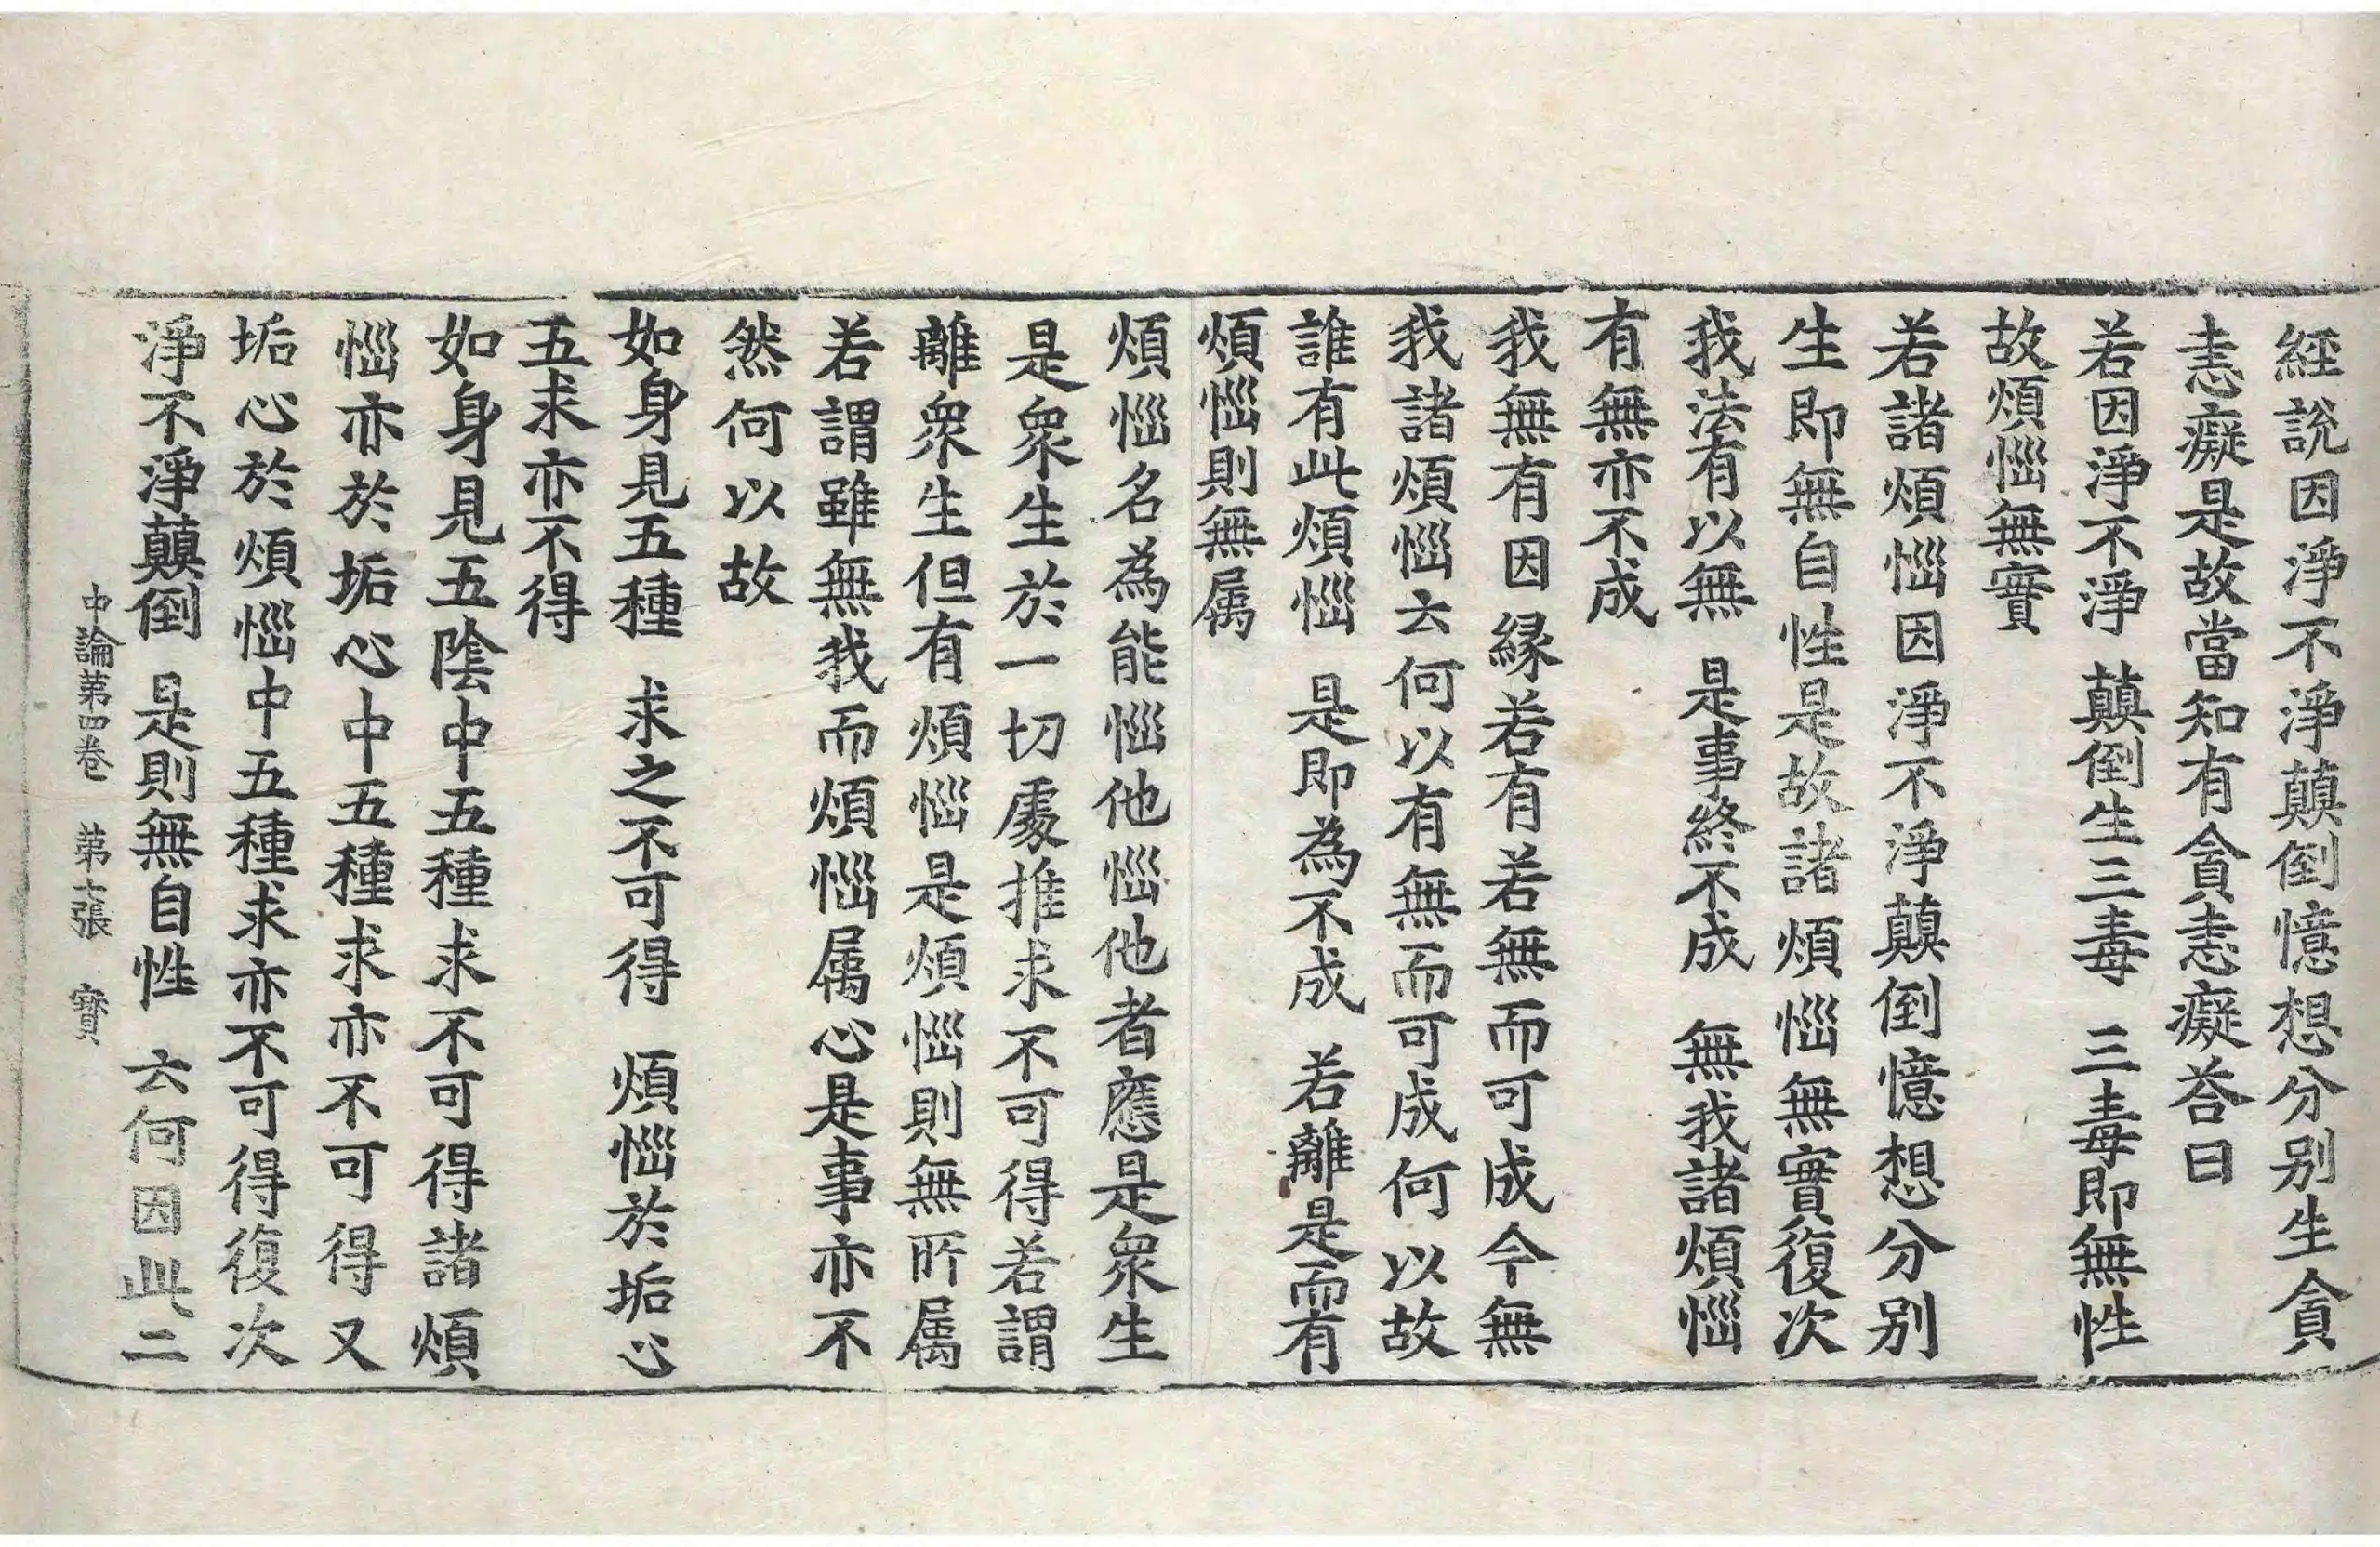 經說因淨不淨顛倒憶想分別生貪
恚癡是故當知有貪恚癡荅曰
若因淨不淨 顛倒生三毒 三毒即無性
故煩惱無實
若諸煩惱因淨不淨顛倒憶想分別
生即無自性是故諸煩惱無實復次
我法有以無 是事終不成 無我諸煩惱
有無亦不成
我無有因緣若有若無而可成今無
我諸煩惱云何以有無而可成何以故
誰有此煩惱 是即為不成 若離是而有
煩惱則無属
煩惱名為能惱他惱他者應是眾生
是眾生於一切處推求不可得若謂
離眾生但有煩惱是煩惱則無所属
若謂雖無我而煩惱属心是事亦不
然何以故
如身見五種 求之不可得 煩惱於垢心
五求亦不得
如身見五陰中五種求不可得諸煩
惱亦於垢心中五種求亦不可得又
垢心於煩惱中五種求亦不可得復次
淨不淨顛倒 是則無自性 云何因此二
中論第四卷 第七張 寶